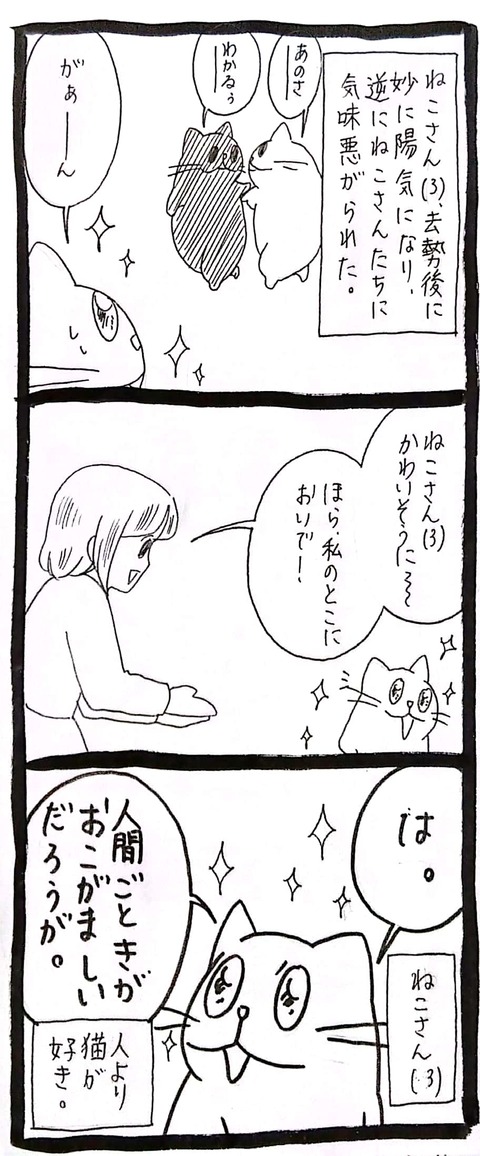 ねこさん(3)、去勢後に
妙に陽気になり、
逆にねこさんたちに
気味悪がられた。
あのさ
ー
わかるぅ
ー
がぁーーん
ねこさん(3)
かわいそうに〜〜
ほら、私のとこに
おいでー!
は。
ねこさん(3)
人間ごときが
おこがましい
だろうが。
人より
猫が
好き。